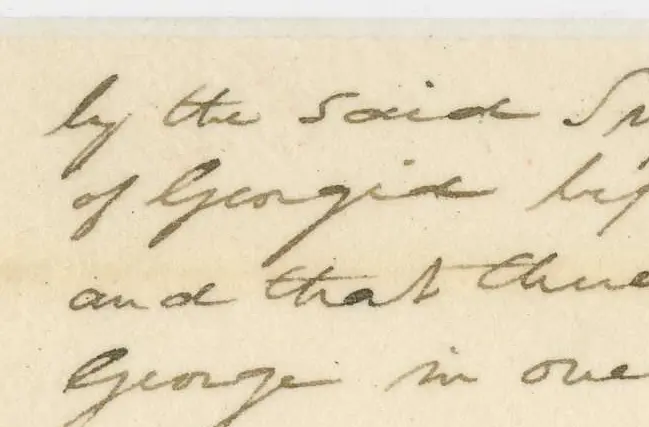 by the said
of Georgia
and that
George in one